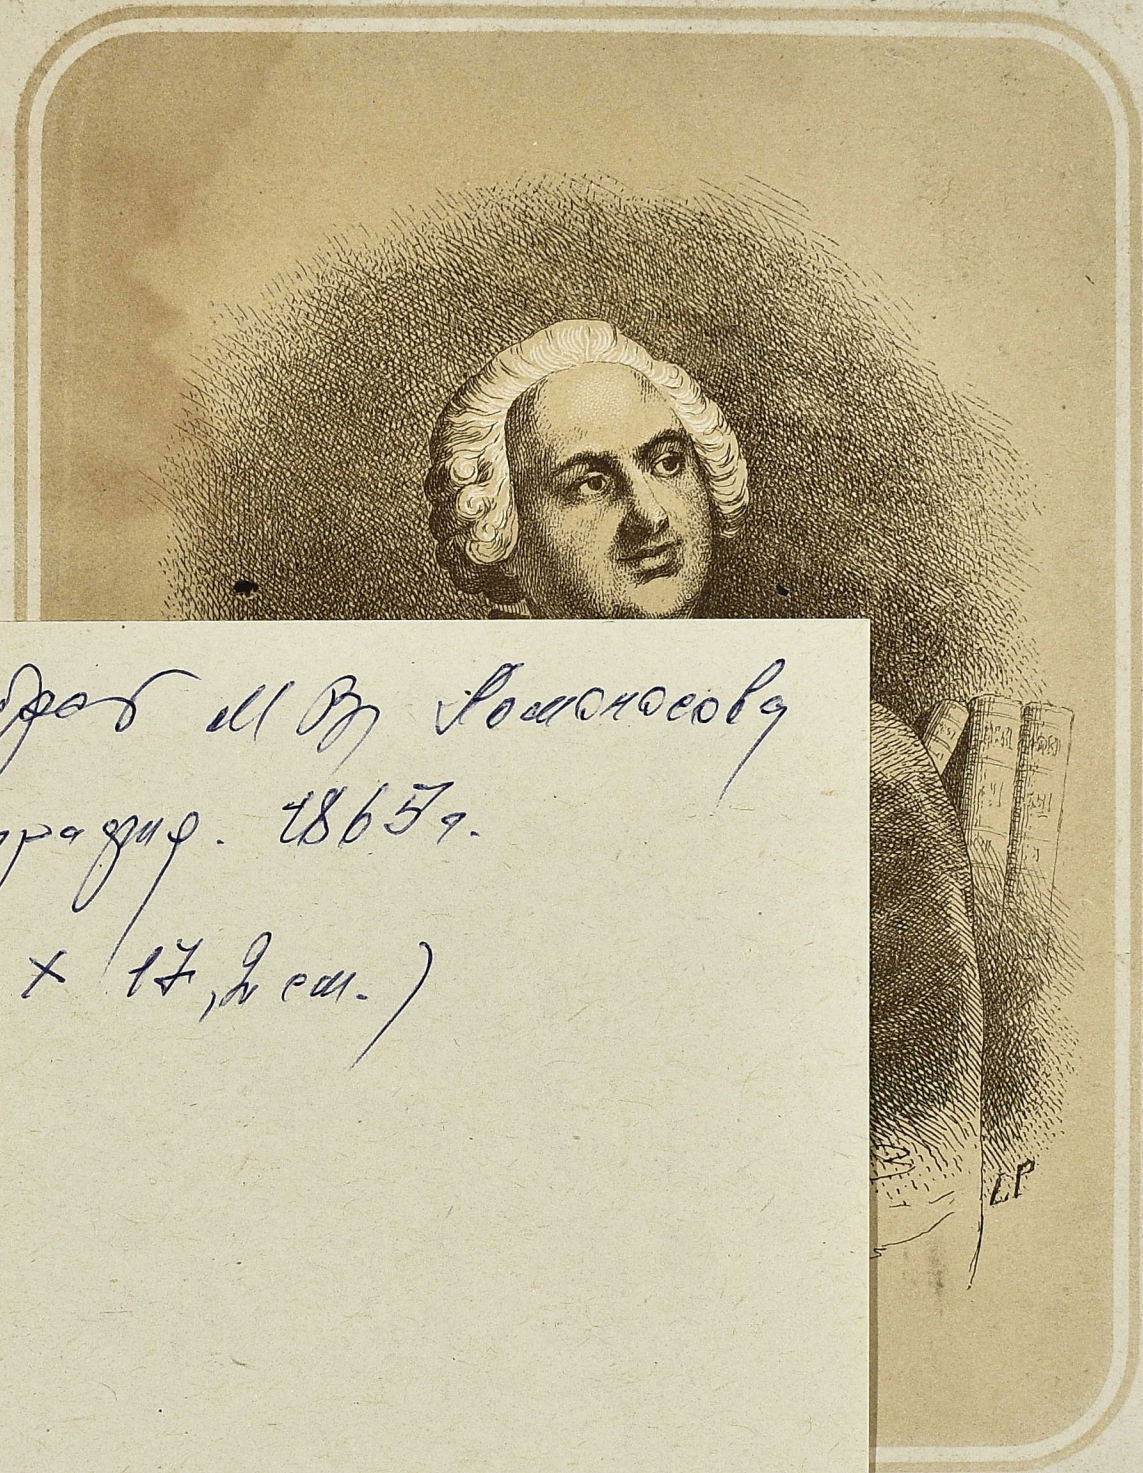 М В Ломоносова
1865 г.
х 17,2 см.)
LP